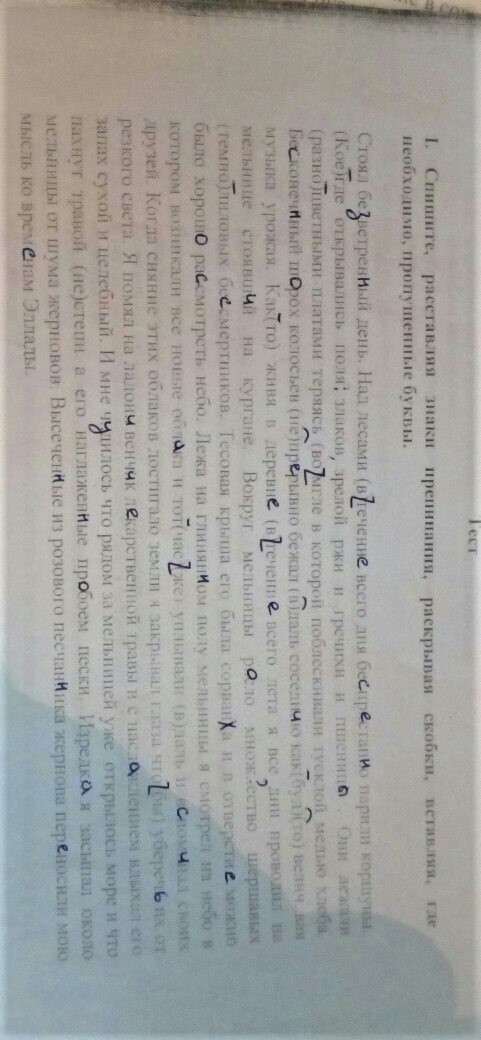 Тест
I. Спишите, расставляя знаки препинания, раскрывая скобки, вставляя, где
необходимо, пропущенные буквы.
Стоял безветренный день. Над лесами (в)течение всего дня беспрестанно парили коршуны
(Кое)где открывались поля; злаков, зрелой ржи и гречихи и пшеницы. Они лежали
(разно)цветными платами теряясь (во)мгле в которой поблескивали тусклой медью хлеба
Бесконечный шорох колосьев (не)прерывно бежал (в)даль соседнюю как(будто) величавая
музыка урожая. Как(то) живя в деревне (в)течение всего лета я все дни проводил на
мельнице стоявший на кургане. Вокруг мельницы росло множество шершавых
(темно)лиловых бессмертников. Тесовая крыша его была сорванна и в отверстие можно
было хорошо рассмотреть небо. Лежа на глиняном полу мельницы я смотрел на небо в
котором возникали все новые облака и тот(час)же уплывали (в)даль и вспоминал своих
друзей Когда сияние этих облаков достигало земли я закрывал глаза что(бы) уберечь их от
резкого света Я помял на ладони венчик лекарственной травы и с наслаждением вдыхал его
запах сухой и целебный И мне чудилось что рядом за мельницей уже открылось море и что
пахнут травой (не)степи а его наглаженные прибоем пески. Изредка я засыпал около
мельницы от шума жерновов. Высеченные из розового песчанника жернова переносили мою
мысль ко временам Эллады.